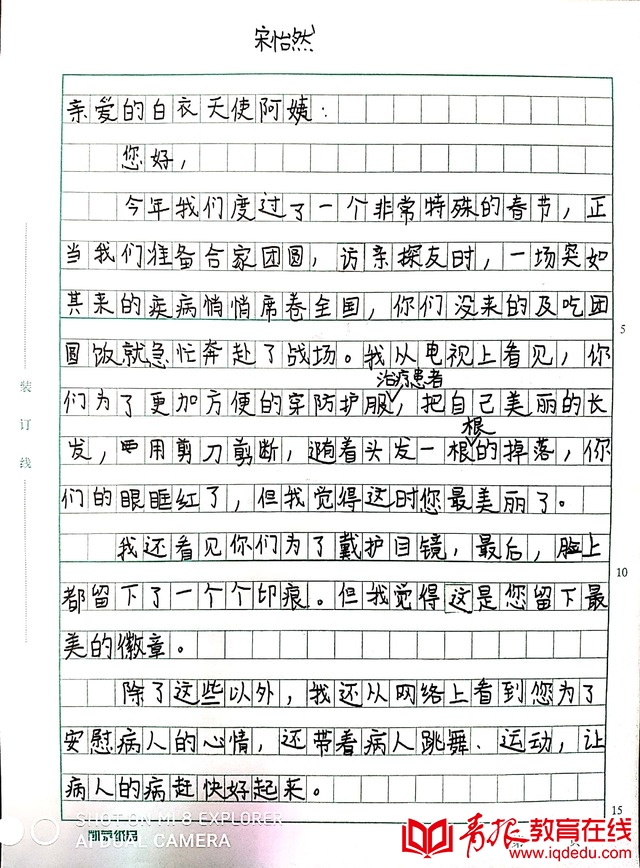 宋怡然
亲爱的白衣天使阿姨:
您好,
今年我们度过了一个非常特殊的春节,正
当我们准备合家团圆,访亲探友时,一场突如
其来的疾病悄悄席卷全国,你们没来的及吃团
圆饭就急忙奔赴了战场。我从电视上看见,你
治疗患者
们为了更加方便的穿防护服,把自己美丽的长
根
发,用剪刀剪断,随着头发一根的掉落,你
们的眼眶红了,但我觉得这时您最美丽了。
我还看见你们为了戴护目镜,最后,脸上
都留下了一个个印痕。但我觉得这是您留下最
美的徽章。
除了这些以外,我还从网络上看到您为了
安慰病人的心情,还带着病人跳舞、运动,让
病人的病赶快好起来。
装
订
线
5
10
15
SHOT ON MI 8 EXPLORER
AI DUAL CAMERA
青报教育在线
www.iqdedu.com